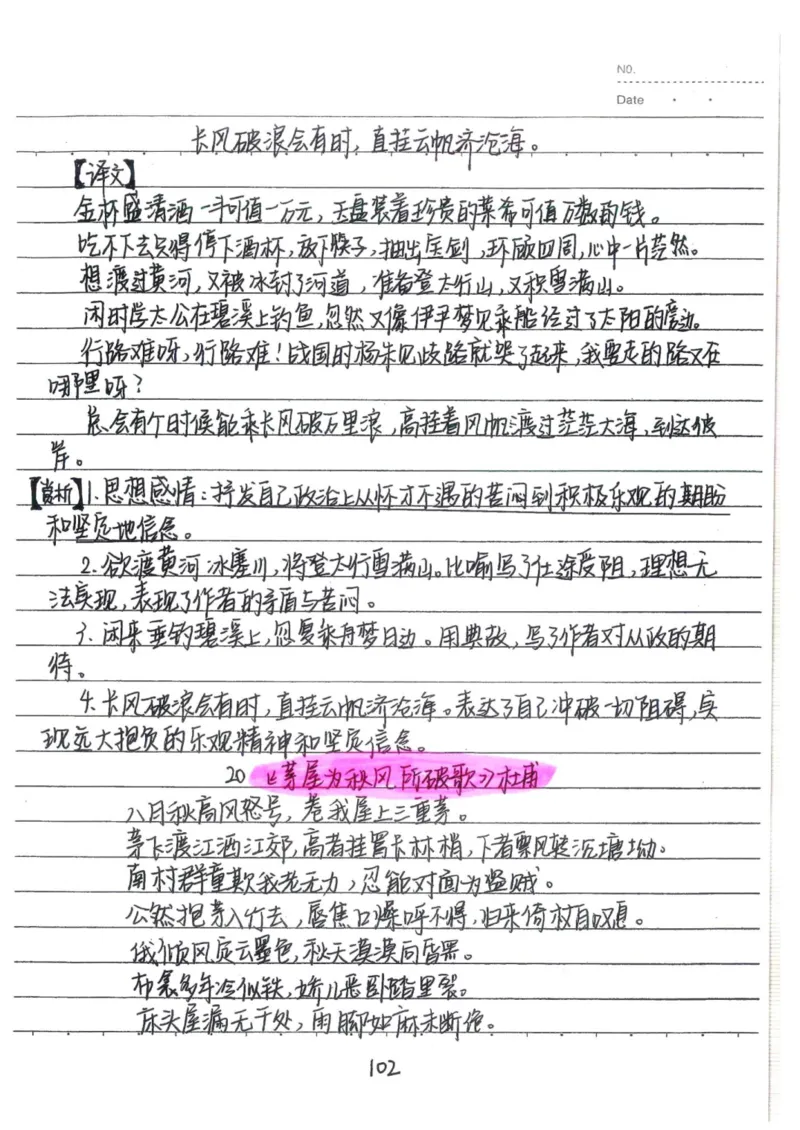 NO.
Date
长风破浪会有时，直挂云帆济沧海。
【译文】
金杯盛清酒一斗可值一万元，玉盘装着珍贵的菜希可值万数的钱。
吃不下去只得停下酒杯，放下筷子，抽出宝剑，环顾四周，心中一片茫然。
想渡过黄河，又被冰封了河道，准备登太行山，又积雪满山。
闲时学太公在碧溪上钓鱼，忽然又像伊尹梦见乘船经过了太阳的旁边。
行路难呀，行路难！战国时杨朱见岐路就哭了起来，我要走的路又在
哪里呀？
总会有个时候能乘长风破万里浪，高挂着风帆渡过茫茫大海，到达彼
岸。
【赏析】1.思想感情：抒发自己政治上从怀才不遇的苦闷到积极乐观的期盼
和坚定地信念。
2.欲渡黄河冰塞川，将登太行雪满山。比喻写了仕途受阻，理想无
法实现，表现了作者的矛盾与苦闷。
3.闲来垂钓碧溪上，忽复乘舟梦日边。用典故，写了作者对从政的期
待。
4.长风破浪会有时，直挂云帆济沧海。表达了自己冲破一切阻碍，实
现远大抱负的乐观精神和坚定信念。
20《茅屋为秋风所破歌》杜甫
八月秋高风怒号，卷我屋上三重茅。
茅飞渡江洒江郊，高者挂罥长林梢，下者飘风转沉塘坳。
南村群童欺我老无力，忍能对面为盗贼。
公然抱茅入竹去，唇焦口燥呼不得，归来倚杖自叹息。
俄顷风定云墨色，秋天漠漠向昏黑。
布衾多年冷似铁，娇儿恶卧踏里裂。
床头屋漏无干处，雨脚如麻未断绝。
102